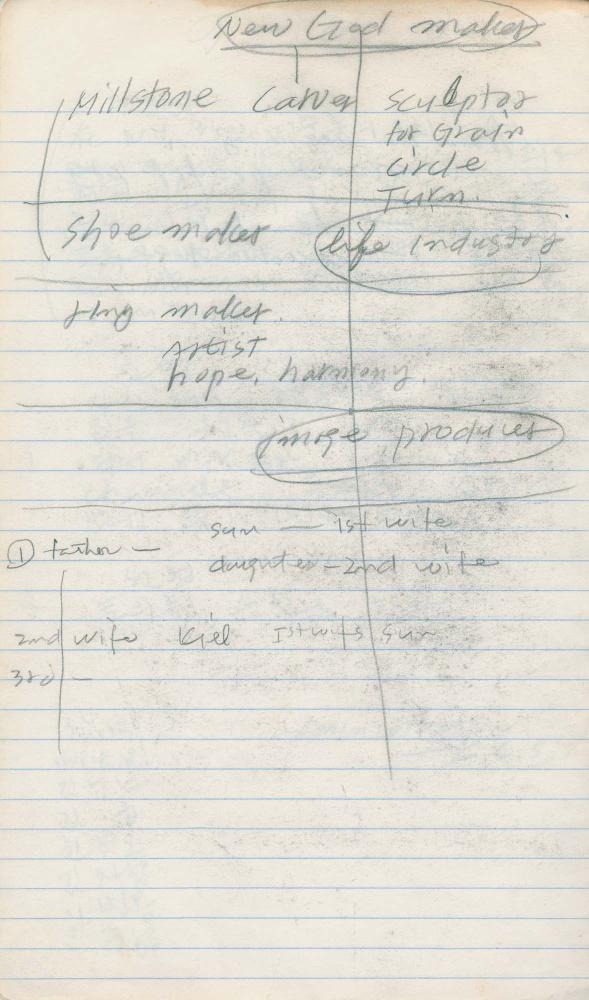 New God maker
Millstone Carver Sculptor
for Grain
Circle
Turn.
Shoe maker life industry
ring maker.
Artist
hope, harmony.
image producer
sun — 1st wife
① father —
daughter — 2nd wife
2nd wife Kiel 1st wife sun
3rd —